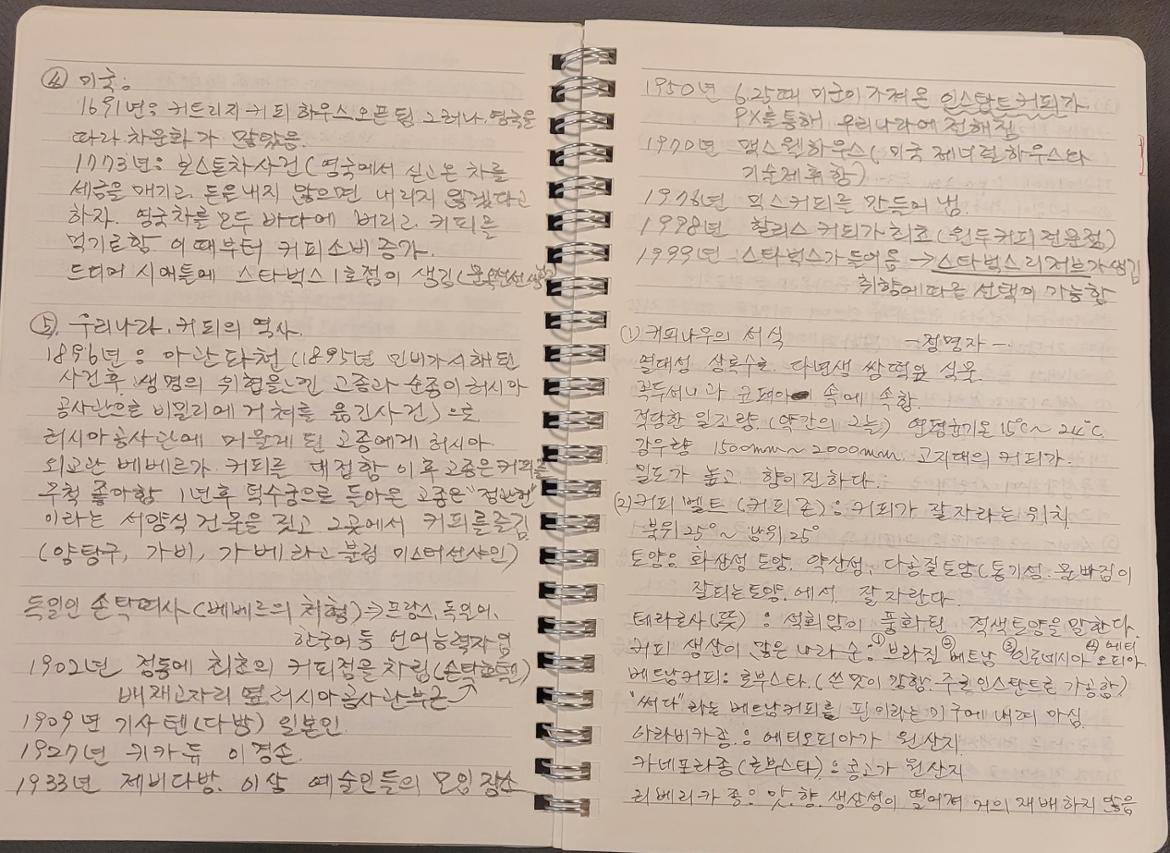 ④ 미국:
1691년: 커트리지 커피 하우스 오픈됨 그러나, 영국을
따라 차문화가 많았음.
1773년: 보스톤차사건(영국에서 싣고온 차를
세금을 매기고 돈을내지 않으면 내리지 않겠다고
하자. 영국차를 모두 바다에 버리고 커피를
먹기로함 이때부터 커피소비 증가.
드디어 시애틀에 스타벅스 1호점이 생김
⑤. 우리나라. 커피의 역사.
1896년 : 아관파천 (1895년 민비가 시해된
사건후, 생명의 위협을 느낀 고종과 순종이 러시아
공사관으로 비밀리에 거처를 옮긴사건)으로
러시아공사관에 머물게 된 고종에게 러시아
외교관 베베르가 커피를 대접함 이후 고종은 커피를
무척 좋아함 1년후 덕수궁으로 돌아온 고종은 "정관헌"
이라는 서양식 건물을 짓고 그곳에서 커피를 즐김
(양탕구, 가비, 가베라고 불림 미스터선샤인)
독일인 손탁여사(베베르의 처형)→프랑스, 독일어,
한국어 등 언어능력자임
1902년 정동에 최초의 커피점을 차림(손탁호텔)
배재고자리 옆 러시아공사관부근
1909년 기사텐(다방) 일본인
1927년 카카듀 이경손
1933년 제비다방. 이상 예술인들의 모임 장소
1950년 6.25때 미군이 가져온 인스탄트커피가
PX를 통해 우리나라에 전해짐
1970년 맥스웰하우스(미국 제너럴하우스와
기술제휴함)
1976년 믹스커피를 만들어 냄.
1998년 할리스 커피가 최초(원두커피 전문점)
1999년 스타벅스가 들어옴 → 스타벅스 리저브가 생김
취향에따른 선택이 가능함
(1) 커피나무의 서식 -정명자-
열대성 상록수로 다년생 쌍떡잎 식물.
꼭두서니과 코페아 속에 속함.
적당한 일조량. (약간의 그늘) 연평균기온 15℃~24℃
강우량 1500mm~2000mm. 고지대의 커피가.
밀도가 높고 향이 진하다.
(2) 커피 벨트 (커피 존) : 커피가 잘 자라는 위치
북위25°~ 남위25°
토양은 화산성 토양. 약산성, 다공질토양(통기성. 물빠짐이
잘되는토양,에서 잘 자란다.
테라로사(뜻) : 석회암이 풍화된 적색토양을 말한다.
커피 생산이 많은 나라 순:①브라질 ②베트남 ③인도네시아 ④에티오피아
베트남커피: 로부스타.(쓴맛이 강함. 주로 인스탄트로 가공함)
"쓰다"라는 베트남커피를 핀 이라는 기구에 내려 마심.
아라비카종.은 에티오피아가 원산지
카네포라종(로부스타) : 콩고가 원산지
리베리카 종은 맛.향. 생산성이 떨어져 거의 재배하지 않음